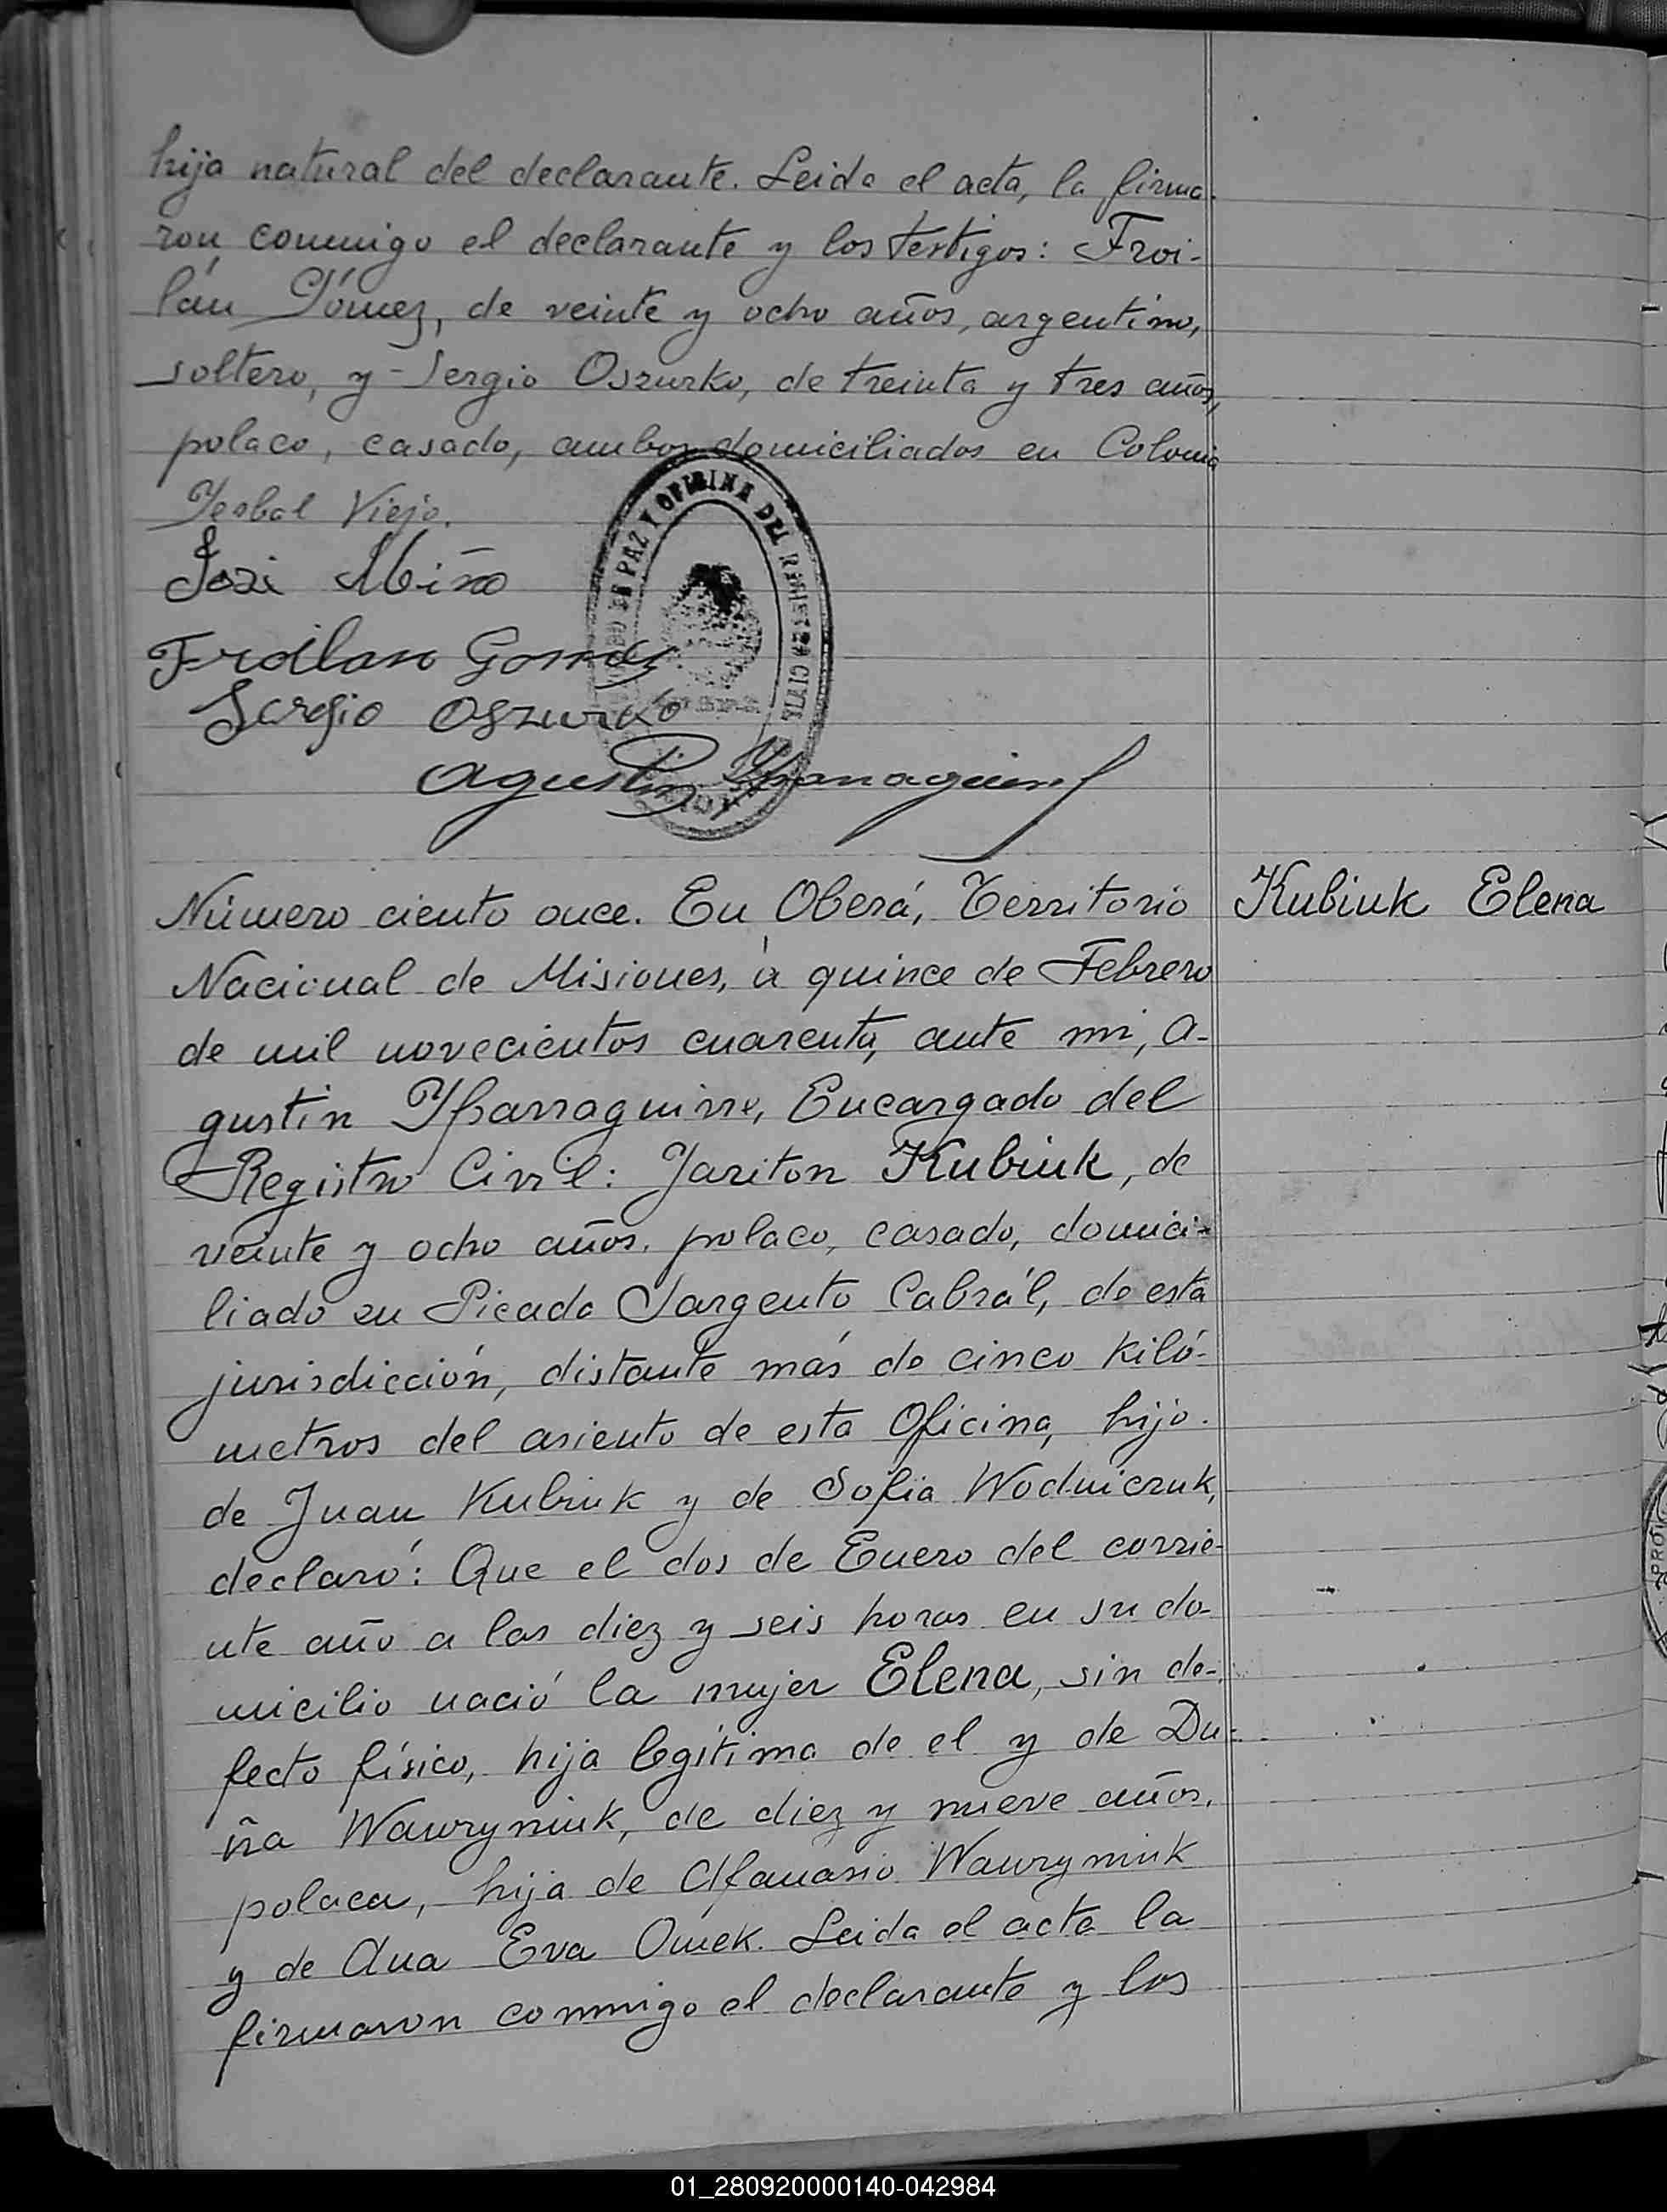 hija natural del declarante. Leida el acta, la firma-
ron conmigo el declarante y los testigos: Froi-
lán Gómez, de veinte y ocho años, argentino,
soltero, y Sergio Oszurko, de treinta y tres años,
polaco, casado, ambos domiciliados en Colonia
Yerbal Viejo.
José Miño
Froilan Gomez
Sergio Oszurko
Agustin Ybarraguirre
JUZGADO DE PAZ Y OFICINA DEL REGISTRO CIVIL
Número ciento once. En Oberá, Territorio
Kubiuk Elena
Nacional de Misiones, a quince de Febrero
de mil novecientos cuarenta, ante mi, A-
gustin Ybarraguirre, Encargado del
Registro Civil: Jariton Kubiuk, de
veinte y ocho años, polaco, casado, domici-
liado en Picada Sargento Cabrál, de esta
jurisdicción, distante más de cinco kiló-
metros del asiento de esta Oficina, hijo
de Juan Kubiuk y de Sofia Wodniczuk,
declaró: Que el dos de Enero del corrie-
nte año a las diez y seis horas en su do-
micilio nació la mujer Elena, sin de-
fecto físico, hija legitima de el y de Du-
ña Wawryniuk, de diez y nueve años,
polaca, hija de Afanasio Wawryniuk
y de Ana Eva Omek. Leida el acta la
firmaron conmigo el declarante y los
01_280920000140-042984